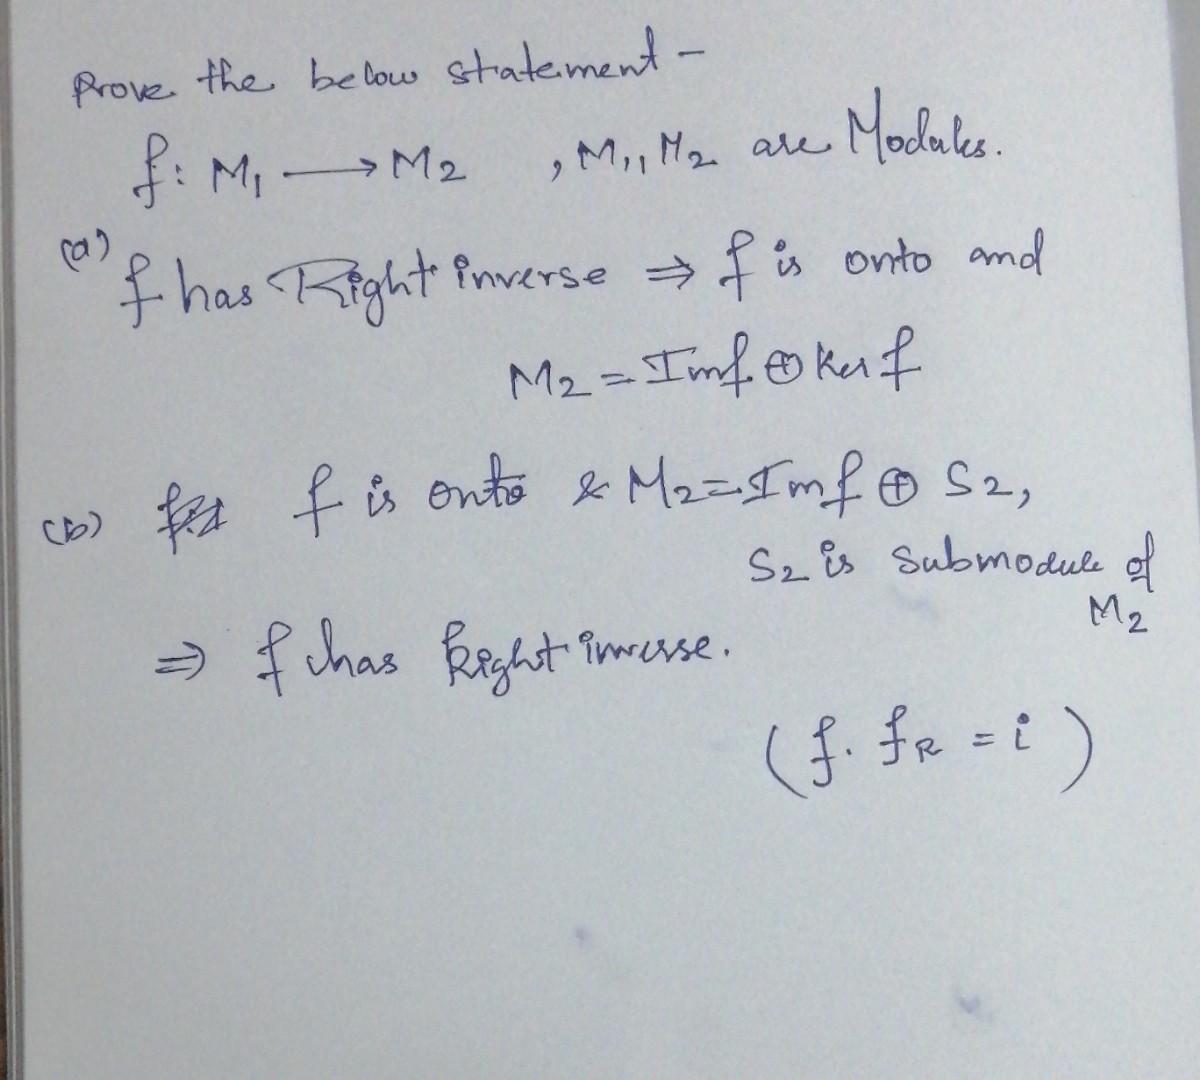 Prove the below statement -
f: M₁ ⟶ M₂ , M₁, M₂ are Modules.
(a) f has Right inverse ⇒ f is onto and
M₂ = Imf ⊕ Ker f
(b) f is onto & M₂ = Imf ⊕ S₂,
S₂ is submodule of
M₂
⇒ f has Right inverse.
(f. f_R = i)